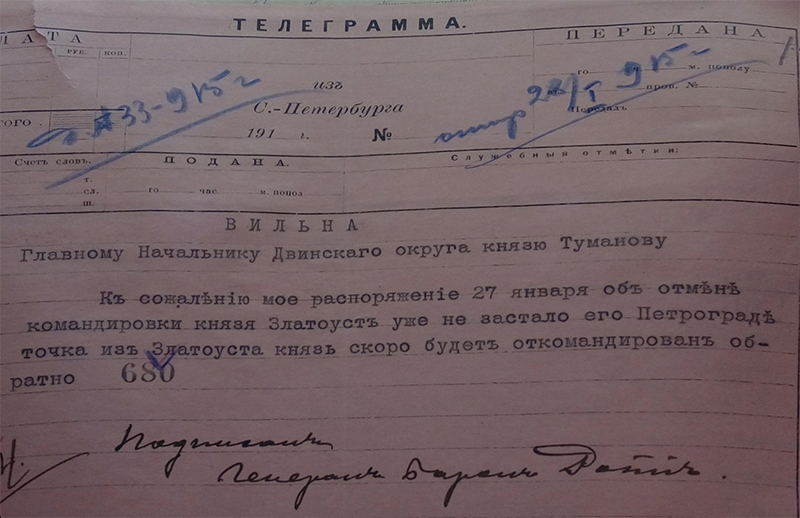 ТЕЛЕГРАММА.
ЛАТА
РУБ. КОП.
ПЕРЕДАНА
го ч. м. пополу
пров. №
Передалъ
изъ
С.-Петербурга
191 г. №
33-915 г
отпр 28/I 915 г
ТОГО.
Счетъ словъ.
т.
сл.
ш.
ПОДАНА.
го час м. попол
Служебныя отмѣтки:
ВИЛЬНА
Главному Начальнику Двинскаго округа князю Туманову
Къ сожалѣнію мое распоряженіе 27 января объ отмѣнѣ
командировки князя Златоустъ уже не застало его Петроградѣ
точка изъ Златоуста князь скоро будетъ откомандированъ об-
ратно 680
Подписалъ
Генералъ Баронъ